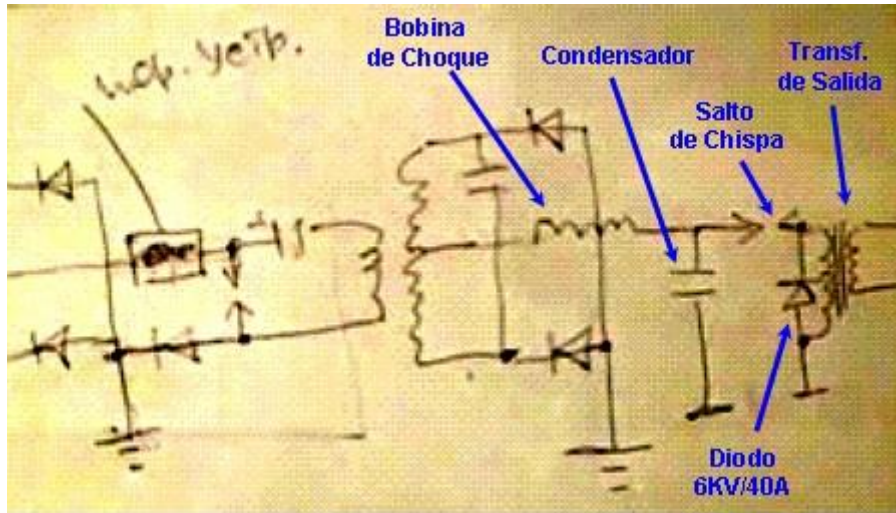 устр.
Bobina
de Choque
Condensador
Transf.
de Salida
Salto
de Chispa
Diodo
6KV/40A